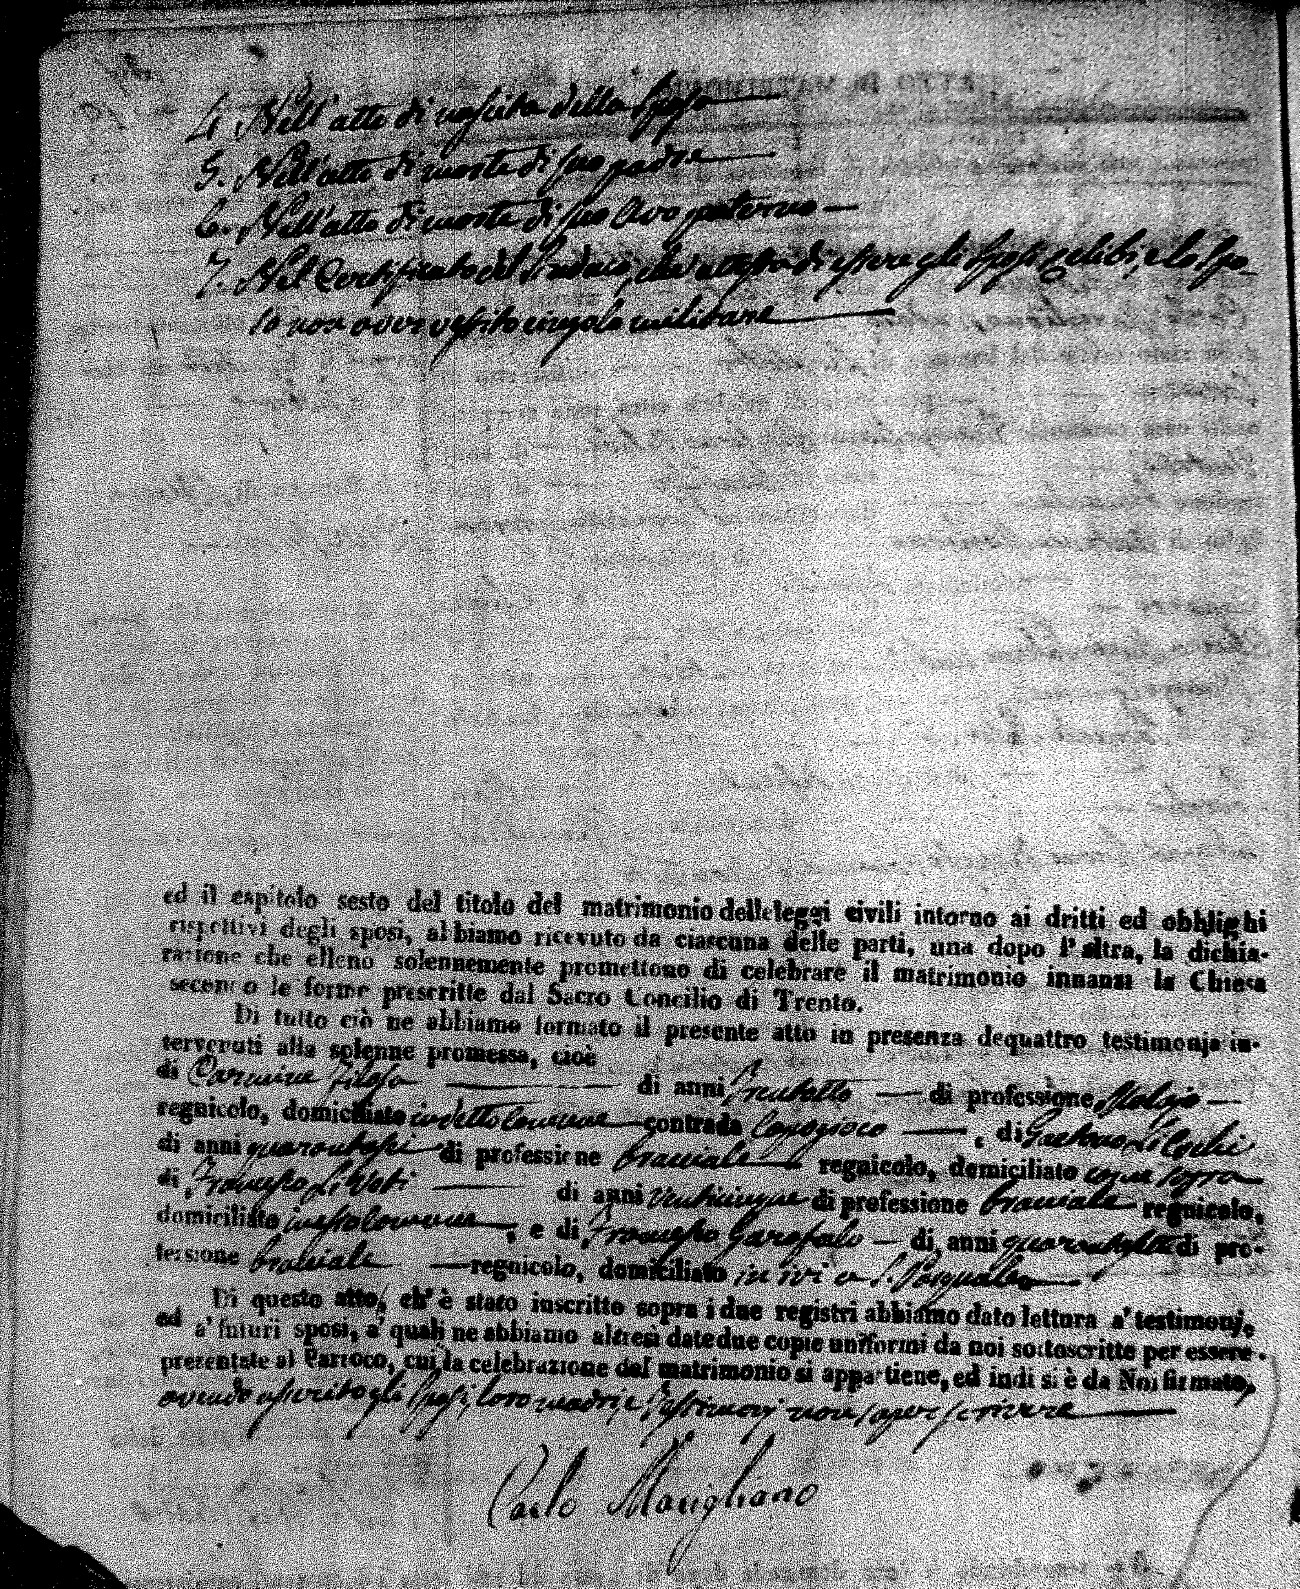 4. Nell'atto di nascita della Sposa
5. Nell'atto di morte di suo padre
6. Nell'atto di morte di suo Avo paterno
7. Nel Certificato del Sindaco, che attesta di essere gli Sposi celibi, e lo Spo-
so non aver vestito cingolo militare
ed il capitolo sesto del titolo del matrimonio delle leggi civili intorno ai dritti ed obblighi
rispettivi degli sposi, abbiamo ricevuto da ciascuna delle parti, una dopo l'altra, la dichia-
razione che elleno solennemente promettono di celebrare il matrimonio innanzi la Chiesa
secondo le forme prescritte dal Sacro Concilio di Trento.
Di tutto ciò ne abbiamo formato il presente atto in presenza dequattro testimonja in-
tervenuti alla solenne promessa, cioè
di Carmine Filosa di anni di professione
regnicolo, domiciliato in detto Comune contrada , di Gaetano
di anni quarantasei di professione bracciale regnicolo, domiciliato come sopra
di Francesco di anni venticinque di professione bracciale regnicolo,
domiciliato in esso Comune, e di Francesco Garofalo di anni di pro-
fessione bracciale regnicolo, domiciliato in ivi a S. Pasquale
Di questo atto, ch'è stato inscritto sopra i due registri abbiamo dato lettura a' testimonj,
ed a' futuri sposi, a' quali ne abbiamo altresì date due copie uniformi da noi sottoscritte per essere
prezentate al Parroco, cui la celebrazione del matrimonio si appartiene, ed indi si è da Noi firmato,
avendo asserito gli Sposi, loro madri, e Testimonj non saper scrivere
Carlo Marigliano